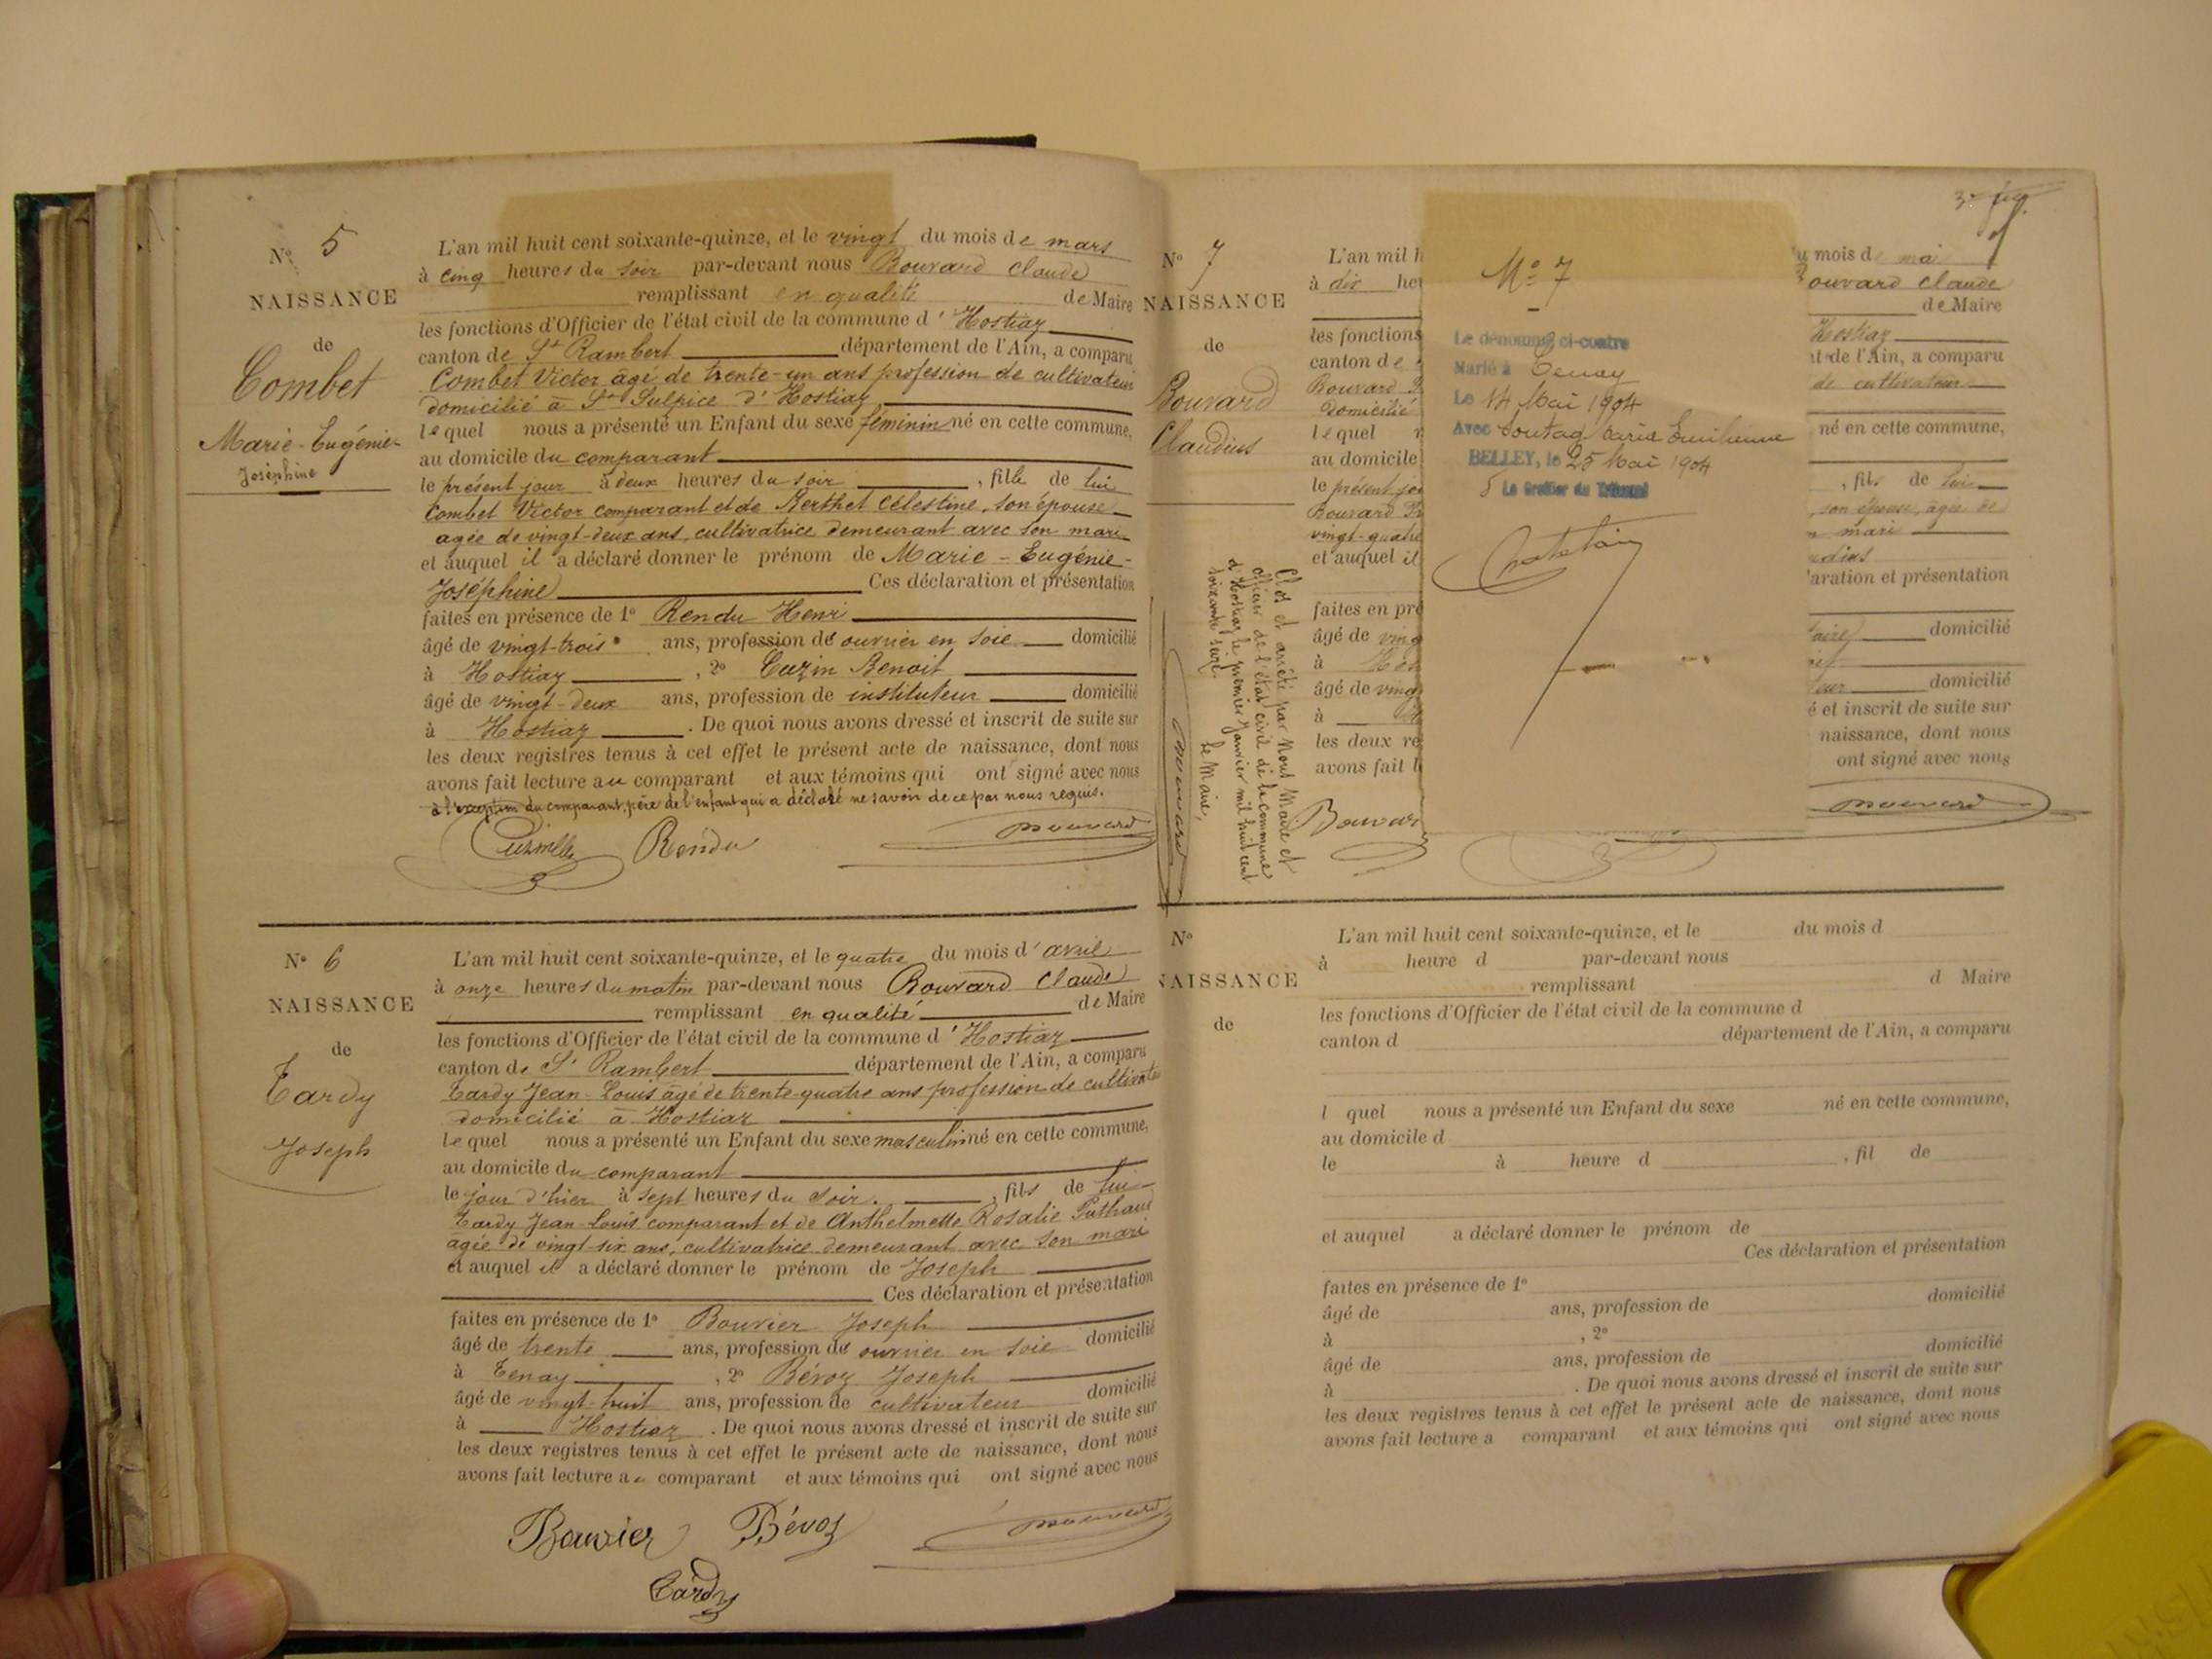 N° 5
NAISSANCE
de
Combet
Marie-Eugénie-
Joséphine
L'an mil huit cent soixante-quinze, et le vingt du mois de mars
à cinq heures du soir par-devant nous Bouvard Claude
remplissant en qualité de Maire
les fonctions d'Officier de l'état civil de la commune d'Hostiaz
canton de St Rambert département de l'Ain, a comparu
Combet Victor âgé de trente-un ans profession de cultivateur
domicilié à St Sulpice d'Hostiaz
lequel nous a présenté un Enfant du sexe féminin né en cette commune,
au domicile du comparant
le présent jour à deux heures du soir , fille de lui
Combet Victor comparant et de Berthet Célestine, son épouse
agée de vingt-deux ans, cultivatrice demeurant avec son mari
et auquel il a déclaré donner le prénom de Marie-Eugénie-
Joséphine Ces déclaration et présentation
faites en présence de 1° Rendu Henri
âgé de vingt-trois ans, profession de ouvrier en soie domicilié
à Hostiaz , 2° Cuzin Benoit
âgé de vingt-deux ans, profession de instituteur domicilié
à Hostiaz . De quoi nous avons dressé et inscrit de suite sur
les deux registres tenus à cet effet le présent acte de naissance, dont nous
avons fait lecture au comparant et aux témoins qui ont signé avec nous
à l'exception du comparant, père de l'enfant qui a déclaré ne savoir de ce par nous requis.
Rendu Bouvard
N° 6
NAISSANCE
de
Tardy
Joseph
L'an mil huit cent soixante-quinze, et le quatre du mois d'avril
à onze heures du matin par-devant nous Bouvard Claude
remplissant en qualité de Maire
les fonctions d'Officier de l'état civil de la commune d'Hostiaz
canton de St Rambert département de l'Ain, a comparu
Tardy Jean-Louis âgé de trente-quatre ans profession de cultivate
domicilié à Hostiaz
lequel nous a présenté un Enfant du sexe masculin né en cette commune,
au domicile du comparant
le jour d'hier à sept heures du soir. , fils de lui
Tardy Jean-Louis comparant et de Anthelmette Rosalie
agée de vingt-six ans, cultivatrice demeurant avec son mari
et auquel il a déclaré donner le prénom de Joseph
Ces déclaration et présentation
faites en présence de 1° Bouvier Joseph
âgé de trente ans, profession de ouvrier en soie domicilié
à Tenay , 2° Bévoz Joseph
âgé de vingt-huit ans, profession de cultivateur domicilié
à Hostiaz . De quoi nous avons dressé et inscrit de suite sur
les deux registres tenus à cet effet le présent acte de naissance, dont nous
avons fait lecture au comparant et aux témoins qui ont signé avec nous
Bouvier Bévoz Bouvard
Tardy
N° 7
NAISSANCE
de
Bouvard
Claudius
Clos et arrêté par Nous Maire et
officier de l'état civil de la commune
d'Hostiaz le premier Janvier mil huit cent
soixante seize.
Le Maire,
Bouvard
L'an mil h
à dix he
les fonctions
canton de
Bouvard
domicilié
lequel
au domicile
le présent jou
Bouvard
vingt-quatre
et auquel il
faites en pré
âgé de ving
à Hos
âgé de ving
à
les deux re
avons fait l
Bouvar
N° 7
Le dénommé ci-contre
Marié à Tenay
Le 14 Mai 1904
Avec Marie Emilienne
BELLEY, le 25 Mai 1904
Le Greffier du Tribunal
u mois de mai
Bouvard Claude
de Maire
Hostiaz
nt de l'Ain, a comparu
de cultivateur
né en cette commune,
, fils de lui
, son épouse, âgée de
n mari
udius
aration et présentation
domicilié
domicilié
é et inscrit de suite sur
naissance, dont nous
ont signé avec nous
Bouvard
N°
NAISSANCE
de
L'an mil huit cent soixante-quinze, et le du mois d
à heure d par-devant nous
remplissant d Maire
les fonctions d'Officier de l'état civil de la commune d
canton d département de l'Ain, a comparu
l quel nous a présenté un Enfant du sexe né en cette commune,
au domicile d
le à heure d , fil de
et auquel a déclaré donner le prénom de
Ces déclaration et présentation
faites en présence de 1°
âgé de ans, profession de domicilié
à , 2°
âgé de ans, profession de domicilié
à . De quoi nous avons dressé et inscrit de suite sur
les deux registres tenus à cet effet le présent acte de naissance, dont nous
avons fait lecture a comparant et aux témoins qui ont signé avec nous